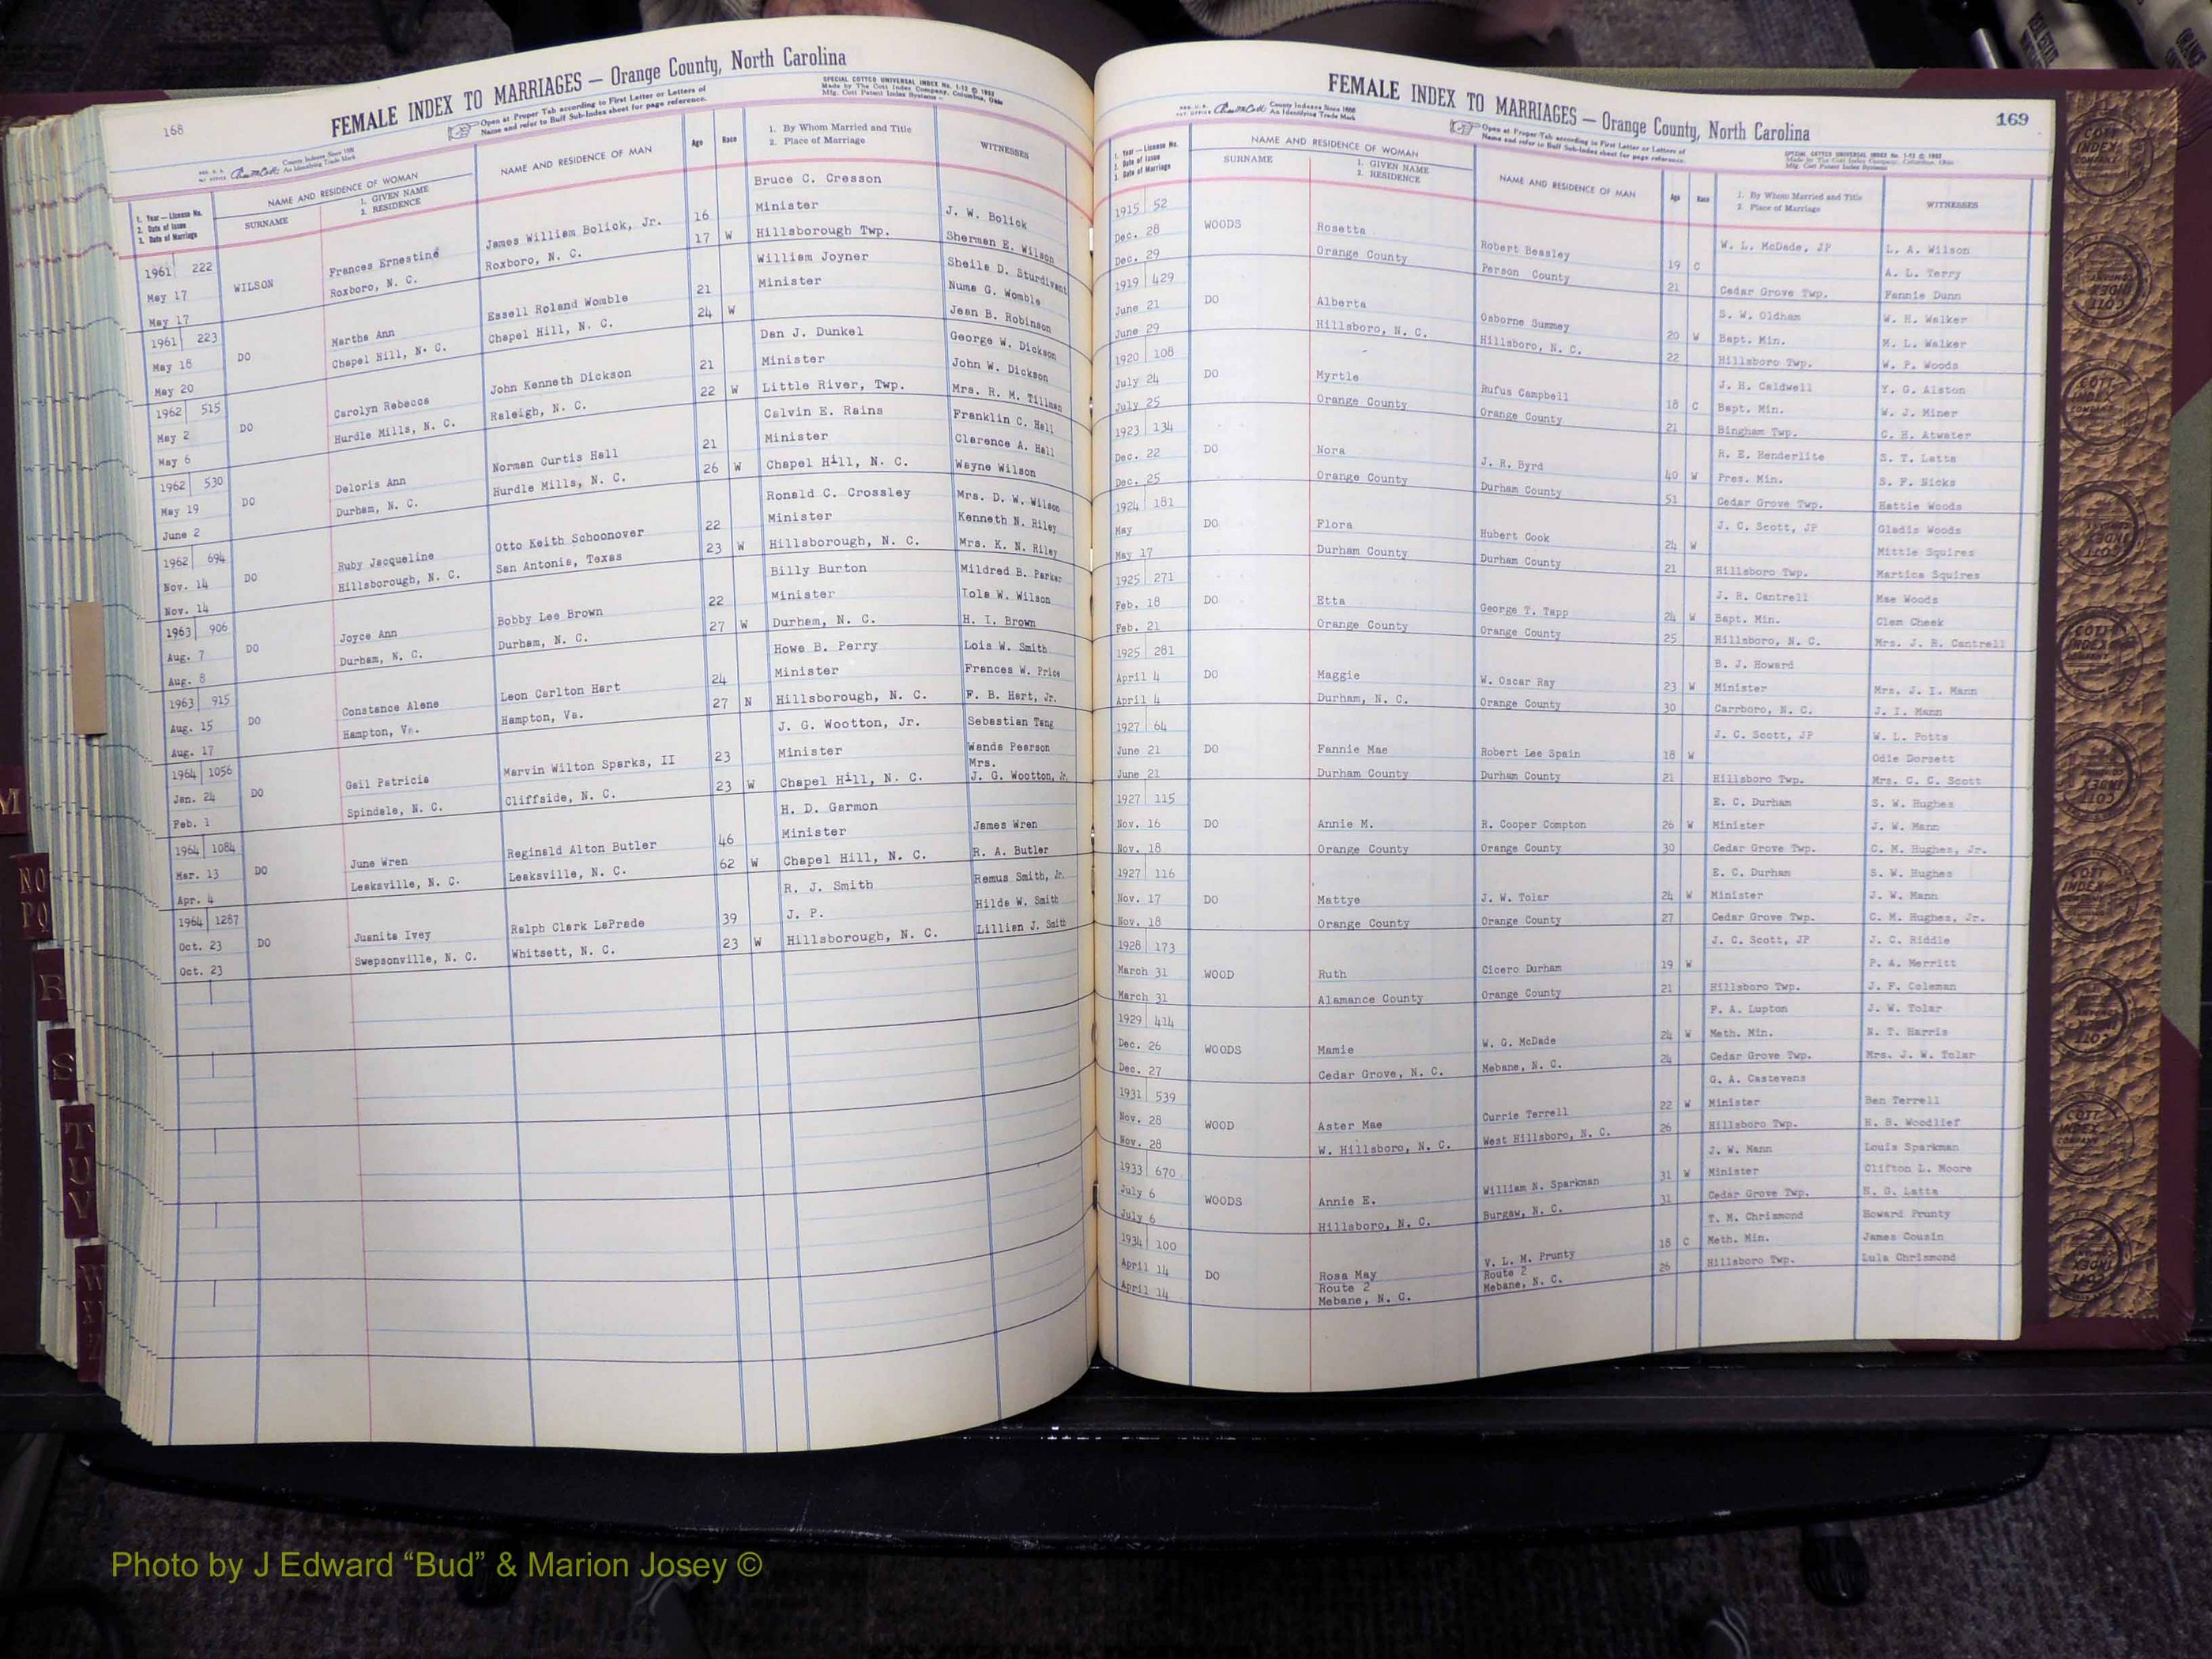 168
FEMALE INDEX TO MARRIAGES — Orange County, North Carolina
Open at Proper Tab according to First Letter or Letters of
Name and refer to Buff Sub-Index sheet for page reference.
SPECIAL COTTCO UNIVERSAL INDEX No. 1-12 © 1952
Made by The Cott Index Company, Columbus, Ohio
Mfg. Cott Patent Index Systems
County Indexes Since 1888
An Identifying Trade Mark
1. Year — License No.
2. Date of Issue
3. Date of Marriage
NAME AND RESIDENCE OF WOMAN
SURNAME
1. GIVEN NAME
2. RESIDENCE
NAME AND RESIDENCE OF MAN
Age
Race
1. By Whom Married and Title
2. Place of Marriage
WITNESSES
1961 222 Bruce C. Cresson
May 17 WILSON Frances Ernestine James William Bolick, Jr. 16 Minister J. W. Bolick
May 17 Roxboro, N. C. Roxboro, N. C. 17 W Hillsborough Twp. Sherman E. Wilson
1961 223 William Joyner Sheila D. Sturdivant
May 18 DO Martha Ann Essell Roland Womble 21 Minister Nume G. Womble
May 20 Chapel Hill, N. C. Chapel Hill, N. C. 24 W Jean B. Robinson
1962 515 Dan J. Dunkel George W. Dickson
May 2 DO Carolyn Rebecca John Kenneth Dickson 21 Minister John W. Dickson
May 6 Hurdle Mills, N. C. Raleigh, N. C. 22 W Little River, Twp. Mrs. R. M. Tillman
1962 530 Calvin E. Rains Franklin C. Hall
May 19 DO Deloris Ann Norman Curtis Hall 21 Minister Clarence A. Hall
June 2 Durham, N. C. Hurdle Mills, N. C. 26 W Chapel Hill, N. C. Wayne Wilson
1962 694 Ronald C. Crossley Mrs. D. W. Wilson
Nov. 14 DO Ruby Jacqueline Otto Keith Schoonover 22 Minister Kenneth N. Riley
Nov. 14 Hillsborough, N. C. San Antonia, Texas 23 W Hillsborough, N. C. Mrs. K. N. Riley
1963 906 Billy Burton Mildred B. Parker
Aug. 7 DO Joyce Ann Bobby Lee Brown 22 Minister Iola W. Wilson
Aug. 8 Durham, N. C. Durham, N. C. 27 W Durham, N. C. H. I. Brown
1963 915 Howe B. Perry Lois W. Smith
Aug. 15 DO Constance Alene Leon Carlton Hart 24 Minister Frances W. Price
Aug. 17 Hampton, Va. Hampton, Va. 27 N Hillsborough, N. C. F. B. Hart, Jr.
1964 1056 J. G. Wootton, Jr. Sebastian Tang
Jan. 24 DO Gail Patricia Marvin Wilton Sparks, II 23 Minister Wanda Pearson
Feb. 1 Spindale, N. C. Cliffside, N. C. 23 W Chapel Hill, N. C. Mrs. J. G. Wootton, Jr.
1964 1084 H. D. Garmon
Mar. 13 DO June Wren Reginald Alton Butler 46 Minister James Wren
Apr. 4 Leaksville, N. C. Leaksville, N. C. 62 W Chapel Hill, N. C. R. A. Butler
1964 1287 R. J. Smith Remus Smith, Jr.
Oct. 23 DO Juanita Ivey Ralph Clark LaPrade 39 J. P. Hilda W. Smith
Oct. 23 Swepsonville, N. C. Whitsett, N. C. 23 W Hillsborough, N. C. Lillian J. Smith
169
FEMALE INDEX TO MARRIAGES — Orange County, North Carolina
Open at Proper Tab according to First Letter or Letters of
Name and refer to Buff Sub-Index sheet for page reference.
SPECIAL COTTCO UNIVERSAL INDEX No. 1-12 © 1952
Made by The Cott Index Company, Columbus, Ohio
Mfg. Cott Patent Index Systems
County Indexes Since 1888
An Identifying Trade Mark
1. Year — License No.
2. Date of Issue
3. Date of Marriage
NAME AND RESIDENCE OF WOMAN
SURNAME
1. GIVEN NAME
2. RESIDENCE
NAME AND RESIDENCE OF MAN
Age
Race
1. By Whom Married and Title
2. Place of Marriage
WITNESSES
1915 52 W. L. McDade, JP L. A. Wilson
Dec. 28 WOODS Rosetta Robert Beasley 19 C A. L. Terry
Dec. 29 Orange County Person County 21 Cedar Grove Twp. Fannie Dunn
1919 429 S. W. Oldham W. H. Walker
June 21 DO Alberta Osborne Summey 20 W Bapt. Min. M. L. Walker
June 29 Hillsboro, N. C. Hillsboro, N. C. 22 Hillsboro Twp. W. P. Woods
1920 108 J. H. Caldwell Y. G. Alston
July 24 DO Myrtle Rufus Campbell 18 C Bapt. Min. W. J. Miner
July 25 Orange County Orange County 21 Bingham Twp. C. H. Atwater
1923 134 R. E. Henderlite S. T. Latta
Dec. 22 DO Nora J. R. Byrd 40 W Pres. Min. S. F. Nicks
Dec. 25 Orange County Durham County 51 Cedar Grove Twp. Hattie Woods
1924 181 J. C. Scott, JP Gladis Woods
May DO Flora Hubert Cook 24 W Mittie Squires
May 17 Durham County Durham County 21 Hillsboro Twp. Martica Squires
1925 271 J. R. Cantrell Mae Woods
Feb. 18 DO Etta George T. Tapp 24 W Bapt. Min. Clem Cheek
Feb. 21 Orange County Orange County 25 Hillsboro, N. C. Mrs. J. R. Cantrell
1925 281 B. J. Howard
April 4 DO Maggie W. Oscar Ray 23 W Minister Mrs. J. I. Mann
April 4 Durham, N. C. Orange County 30 Carrboro, N. C. J. I. Mann
1927 64 J. C. Scott, JP W. L. Potts
June 21 DO Fannie Mae Robert Lee Spain 18 W Odie Dorsett
June 21 Durham County Durham County 21 Hillsboro Twp. Mrs. C. C. Scott
1927 115 E. C. Durham S. W. Hughes
Nov. 16 DO Annie M. R. Cooper Compton 26 W Minister J. W. Mann
Nov. 18 Orange County Orange County 30 Cedar Grove Twp. C. M. Hughes, Jr.
1927 116 E. C. Durham S. W. Hughes
Nov. 17 DO Mattye J. W. Tolar 24 W Minister J. W. Mann
Nov. 18 Orange County Orange County 27 Cedar Grove Twp. C. M. Hughes, Jr.
1928 173 J. C. Scott, JP J. C. Riddle
March 31 WOOD Ruth Cicero Durham 19 W P. A. Merritt
March 31 Alamance County Orange County 21 Hillsboro Twp. J. F. Coleman
1929 414 F. A. Lupton J. W. Tolar
Dec. 26 WOODS Mamie W. G. McDade 24 W Meth. Min. N. T. Harris
Dec. 27 Cedar Grove, N. C. Mebane, N. C. 24 Cedar Grove Twp. Mrs. J. W. Tolar
1931 539 G. A. Castevens
Nov. 28 WOOD Aster Mae Currie Terrell 22 W Minister Ben Terrell
Nov. 28 W. Hillsboro, N. C. West Hillsboro, N. C. 26 Hillsboro Twp. H. B. Woodlief
1933 670 J. W. Mann Louis Sparkman
July 6 WOODS Annie E. William N. Sparkman 31 W Minister Clifton L. Moore
July 6 Hillsboro, N. C. Burgaw, N. C. 31 Cedar Grove Twp. H. G. Latta
1934 100 T. M. Chrismond Howard Prunty
April 14 DO Rosa May V. L. M. Prunty 18 C Meth. Min. James Cousin
April 14 Route 2 Route 2 26 Hillsboro Twp. Lula Chrismond
Mebane, N. C. Mebane, N. C.
M
NO
PQ
R
S
T
U
V
W
COTT INDEX COMPANY
Photo by J Edward “Bud” & Marion Josey ©